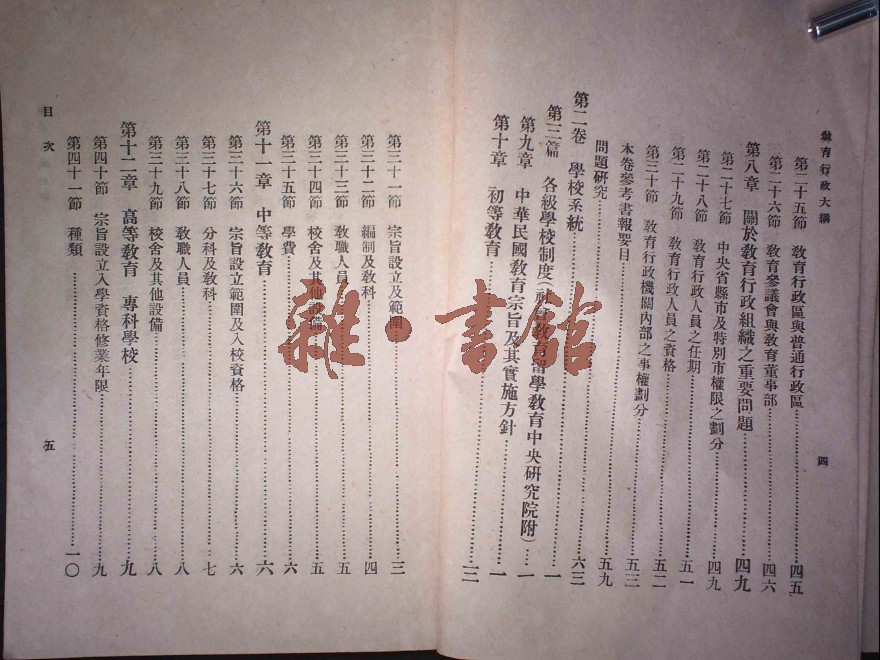 教育行政大綱
第二十五節 教育行政區與普通行政區 四五
第二十六節 教育參議會與教育董事部 四六
第八章 關於教育行政組織之重要問題 四九
第二十七節 中央省縣市及特別市權限之劃分 四九
第二十八節 教育行政人員之任期 五一
第二十九節 教育行政人員之資格 五二
第三十節 教育行政機關內部之事權劃分 五三
本卷參考書報要目 五九
問題研究 六三
第二卷 學校系統
第三篇 各級學校制度(社會教育留學教育中央研究院附) 一
第九章 中華民國教育宗旨及其實施方針 一
第十章 初等教育 三
四
第三十一節 宗旨設立及範圍 三
第三十二節 編制及教科 四
第三十三節 教職人員 五
第三十四節 校舍及其他設備 五
第三十五節 學費 六
第十一章 中等教育 六
第三十六節 宗旨設立範圍及入校資格 六
第三十七節 分科及教科 七
第三十八節 教職人員 八
第三十九節 校舍及其他設備 八
第十二章 高等教育 專科學校 九
第四十節 宗旨設立入學資格修業年限 九
第四十一節 種類 一〇
目次
五
雜·書館